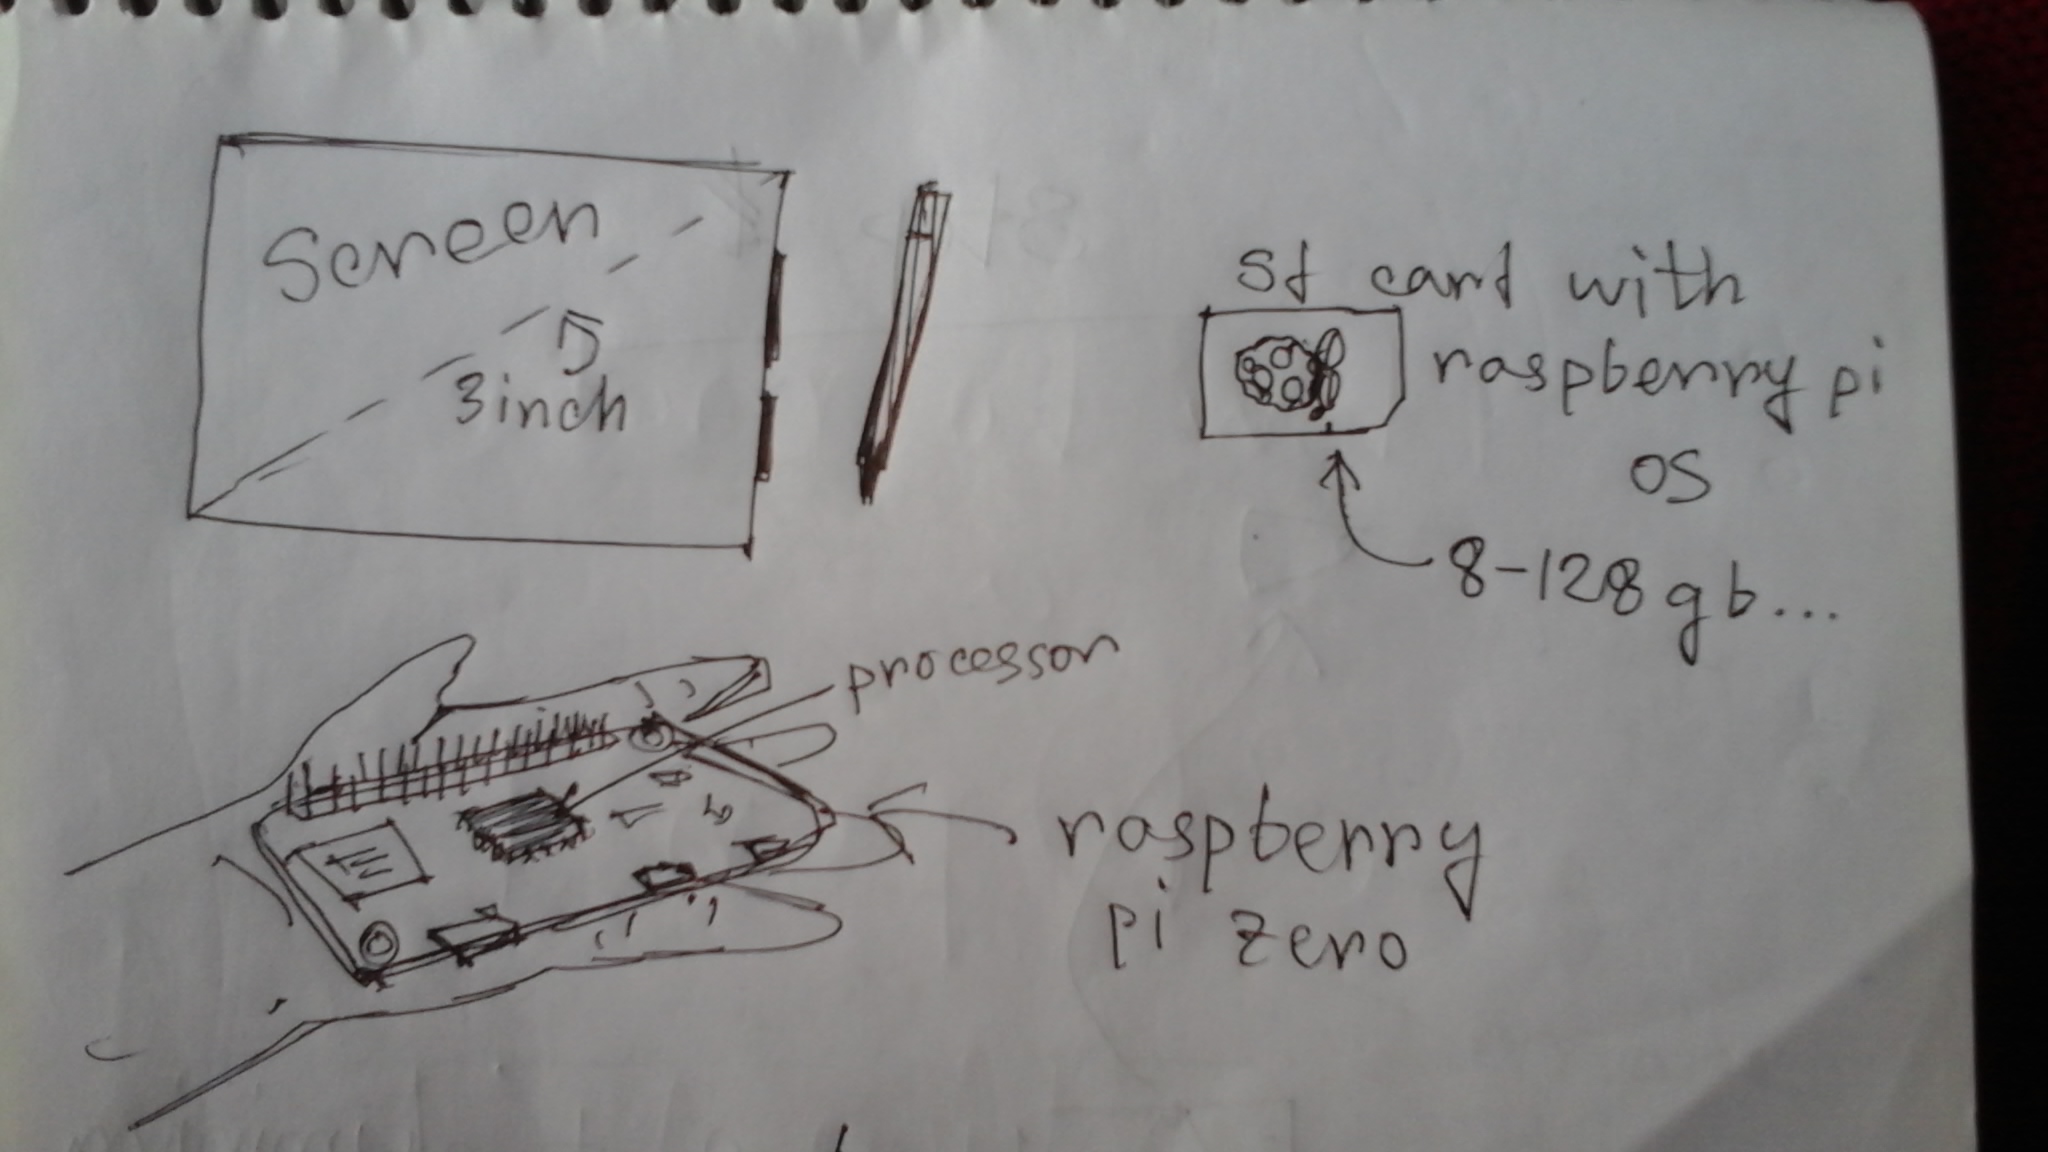 Screen
5
3inch
Sd card with
raspberry pi
OS
8-128gb...
processor
raspberry
pi zero